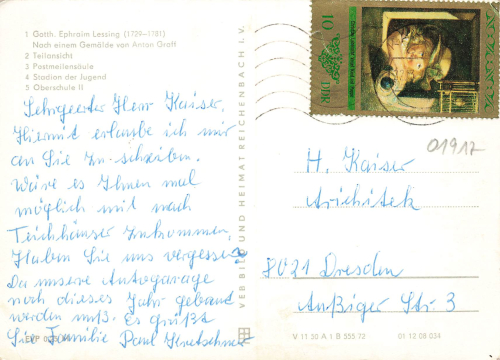 1 Gotth. Ephraim Lessing (1729–1781)
Nach einem Gemälde von Anton Graff
2 Teilansicht
3 Postmeilensäule
4 Stadion der Jugend
5 Oberschule II
Sehrgeerter Herr Kaiser,
Hiermit erlaube ich mir
an Sie zu schreiben.
Wäre es Ihnen mal
möglich mit nach
Teichhäuser zukommen,
Haben Sie uns vergessen?
Da unsere Autogarage
noch dieses Jahr gebaut
werden muß. Es grüßt
Sie Familie Paul
VEB BILD UND HEIMAT REICHENBACH I. V.
10
DDR
01917
H. Kaiser
Arichitek
8021 Dresden
Außiger Str. 3
V 11 30 A 1 B 555 72
01 12 06 034